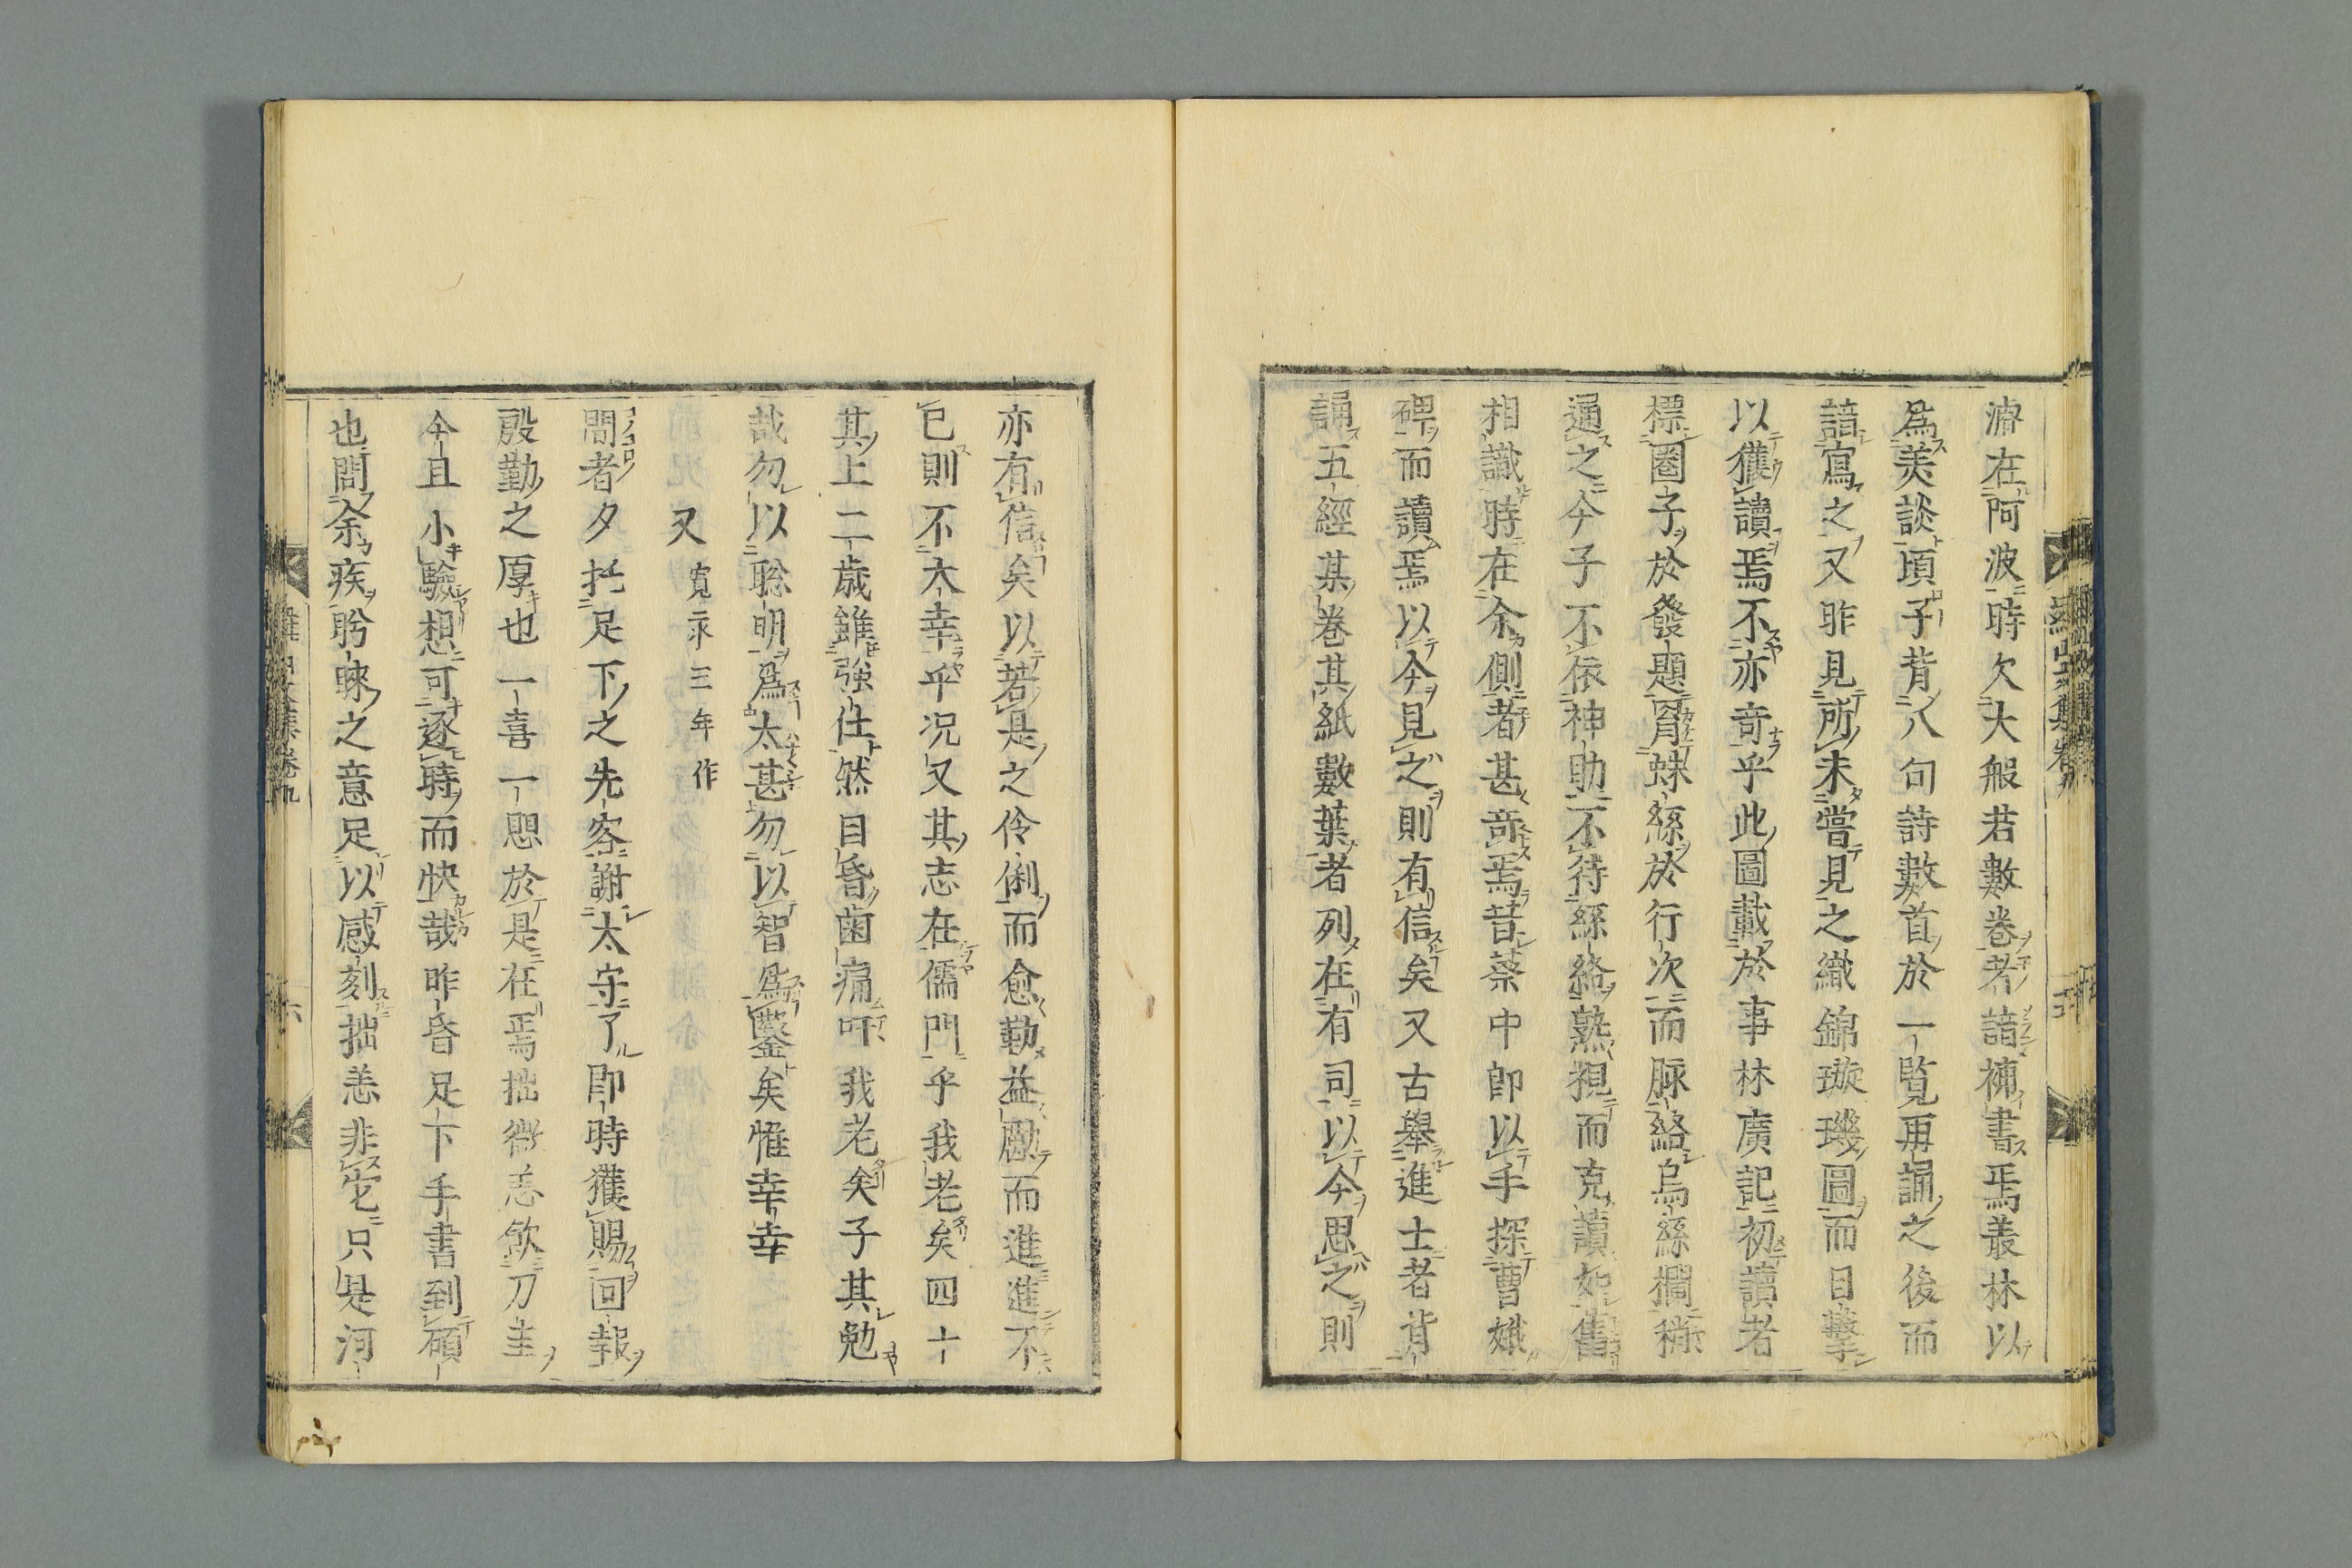 濟在阿波時欠大般若數卷者諳補書焉叢林以
爲美談頃子背八句詩數首於一覧再誦之後而
諳寫之又昨見所未嘗見之織錦璇璣圖而目擊
以獲讀焉不亦奇乎此圖載於事林廣記初讀者
標圏子於發題罥蛛絲於行次而脉絡烏絲攔稱
通之今子不依神助不待絲絡熟視而克讀如舊
相識時在余側者甚奇焉昔蔡中郎以手探曹娥
碑而讀焉以今見之則有信矣又古舉進士者背
誦五經某卷其紙數葉者列在有司以今思之則
亦有信矣以若是之伶俐而愈勤益勵而進進不
已則不太幸乎况又其志在儒門乎我老矣四十
其上二歳雖強仕然目昏齒痛吁我老矣子其勉
哉勿以聡明爲太甚勿以智爲鑿矣惟幸幸
又 寛永三年作
間者夕托足下之先容謝太守了即時獲賜回報
殷勤之厚也一喜一思於是在焉拙微恙飲刀圭
今且小驗想可逐時而快哉昨昏足下手書到碩
也問余疾眕睞之意足以感刻拙恙非它只是河